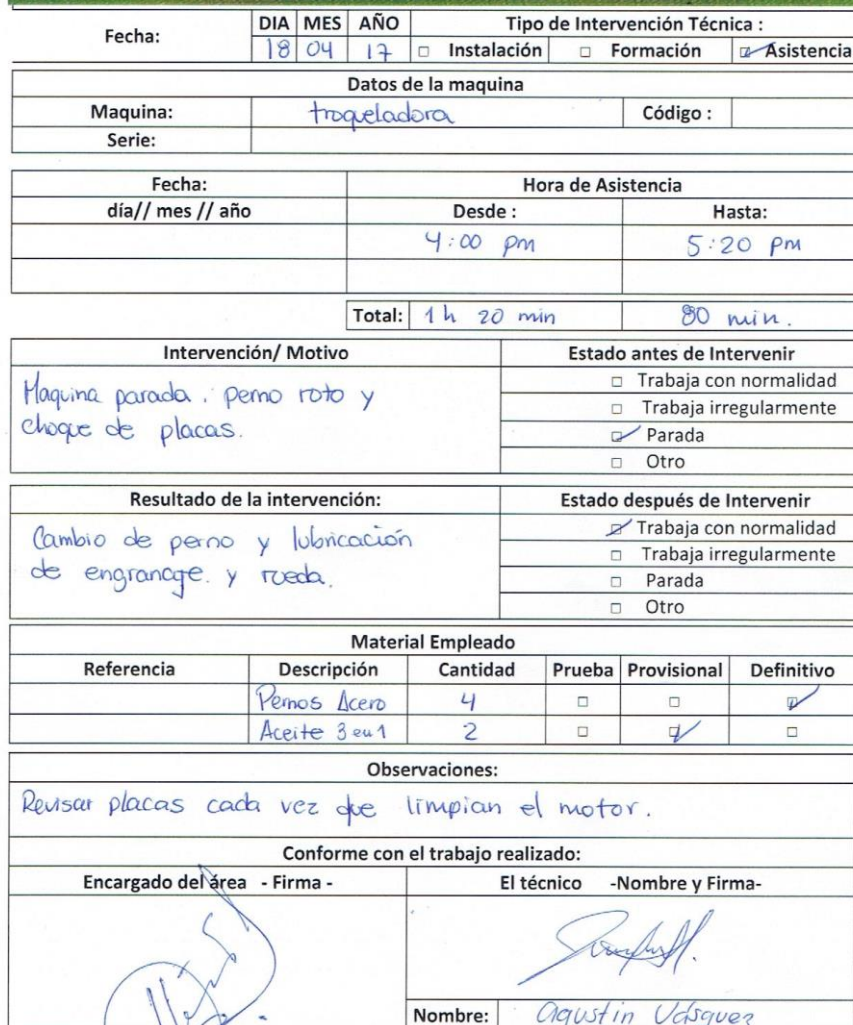 Fecha: DIA MES AÑO Tipo de Intervención Técnica :
18 04 17 □ Instalación □ Formación ☑ Asistencia
Datos de la maquina
Maquina: troqueladora Código :
Serie:
Fecha: Hora de Asistencia
día// mes // año Desde : Hasta:
4:00 pm 5:20 pm
Total: 1 h 20 min 80 min.
Intervención/ Motivo Estado antes de Intervenir
Maquina parada. perno roto y
choque de placas.
□ Trabaja con normalidad
□ Trabaja irregularmente
☑ Parada
□ Otro
Resultado de la intervención: Estado después de Intervenir
Cambio de perno y lubricación
de engranage. y rueda.
☑ Trabaja con normalidad
□ Trabaja irregularmente
□ Parada
□ Otro
Material Empleado
Referencia Descripción Cantidad Prueba Provisional Definitivo
Pernos Acero 4 □ □ ☑
Aceite 3 en 1 2 □ ☑ □
Observaciones:
Revisar placas cada vez que limpian el motor.
Conforme con el trabajo realizado:
Encargado del área - Firma - El técnico -Nombre y Firma-
Nombre: Agustin Vásquez